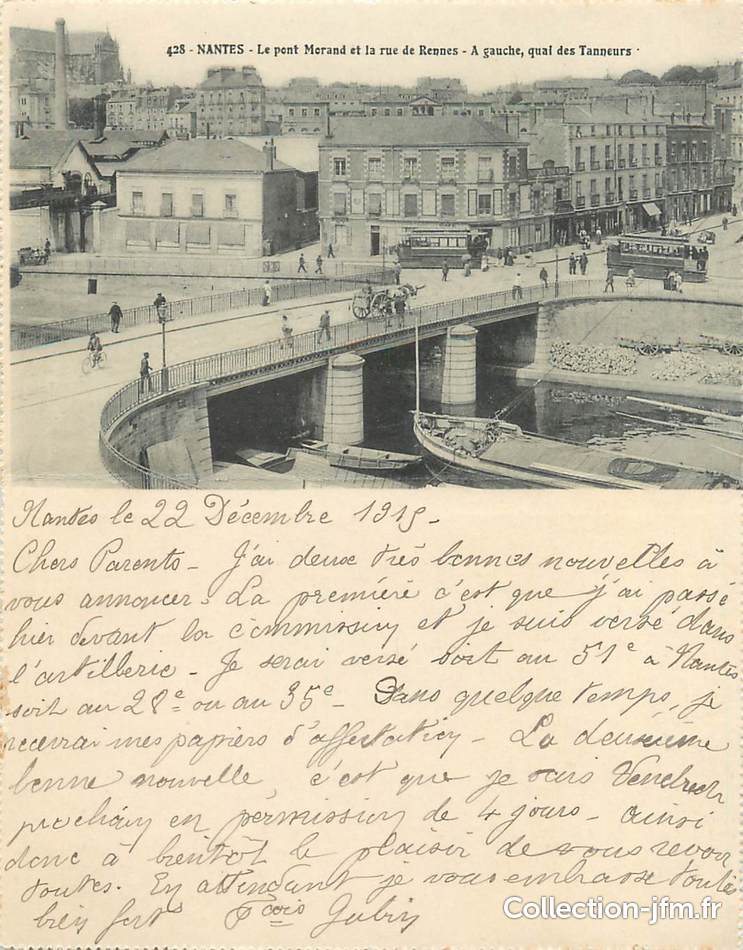 428 - NANTES - Le pont Morand et la rue de Rennes - A gauche, quai des Tanneurs
Nantes le 22 Décembre 1915.
Chers Parents - J'ai deux très bonnes nouvelles à
vous annoncer. La première c'est que j'ai passé
hier devant la commission et je suis versé dans
l'artillerie - Je serai versé soit au 51e à Nantes
soit au 28e ou au 35e - Dans quelque temps, je
recevrai mes papiers d'affectation - La deuxième
bonne nouvelle, c'est que je vais Vendredi
prochain en permission de 4 jours - ainsi
donc à bientôt le plaisir de vous revoir
toutes. En attendant je vous embrasse toutes
bien fort Fcois Jubin
Collection-jfm.fr